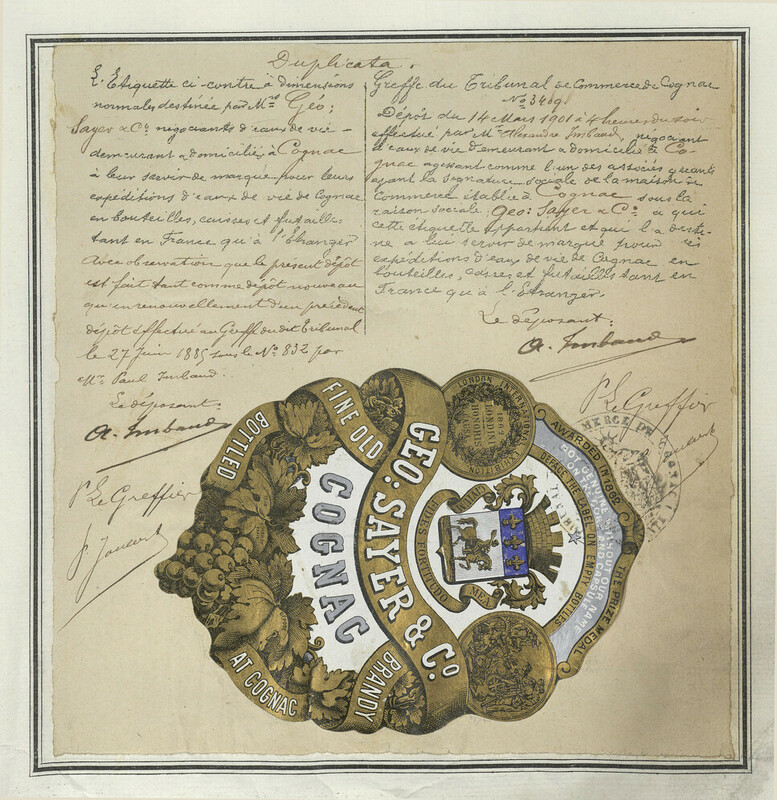 Duplicata.
L'Etiquette ci-contre à dimensions
normales destinée par Mrs Géo:
Sayer & Co. négociants d'eaux de vie -
demeurant & domiciliés à Cognac
à leur servir de marque pour leurs
expéditions d'eaux de vie de Cognac
en bouteilles, caisses et futailles
tant en France qu'à l'Etranger
Avec observation que le présent dépôt
est fait tant comme dépôt nouveau
qu'en renouvellement d'un précédent
dépôt effectué au Greffe du dit Tribunal
le 27 Juin 1885 sous le No. 832 par
Mr. Paul Imbaud.
Le déposant:
A. Imbaud
Pr Le Greffier
Greffe du Tribunal de Commerce de Cognac
No 3469
Dépôt du 14 Mars 1901 à 4 heures du soir
effectué par Mr. Alexandre Imbaud, négociant
d'eaux de vie demeurant & domicilié à Co-
gnac agissant comme l'un des associés gérants
ayant la signature sociale de la maison de
Commerce établie à Cognac sous la
raison sociale, Geo: Sayer & Co. à qui
cette étiquette appartient et qui l'a desti-
né à lui servir de marque pour ses
expéditions d'eaux de vie de Cognac en
bouteilles, caisses et futailles tant en
France qu'à l'Etranger.
Le déposant:
A. Imbaud
Pr Le Greffier
BOTTLED
FINE OLD
GEO: SAYER & Co
COGNAC
BRANDY
AT COGNAC
LONDON INTERNATIONAL EXHIBITION
1862
LONDINI
HONORIS
AWARDED IN 1862
THE PRIZE MEDAL
DEFACE THE LABEL ON EMPTY BOTTLES
NOT GENUINE WITHOUT OUR NAME
ON THE CORK AND CAPSULE